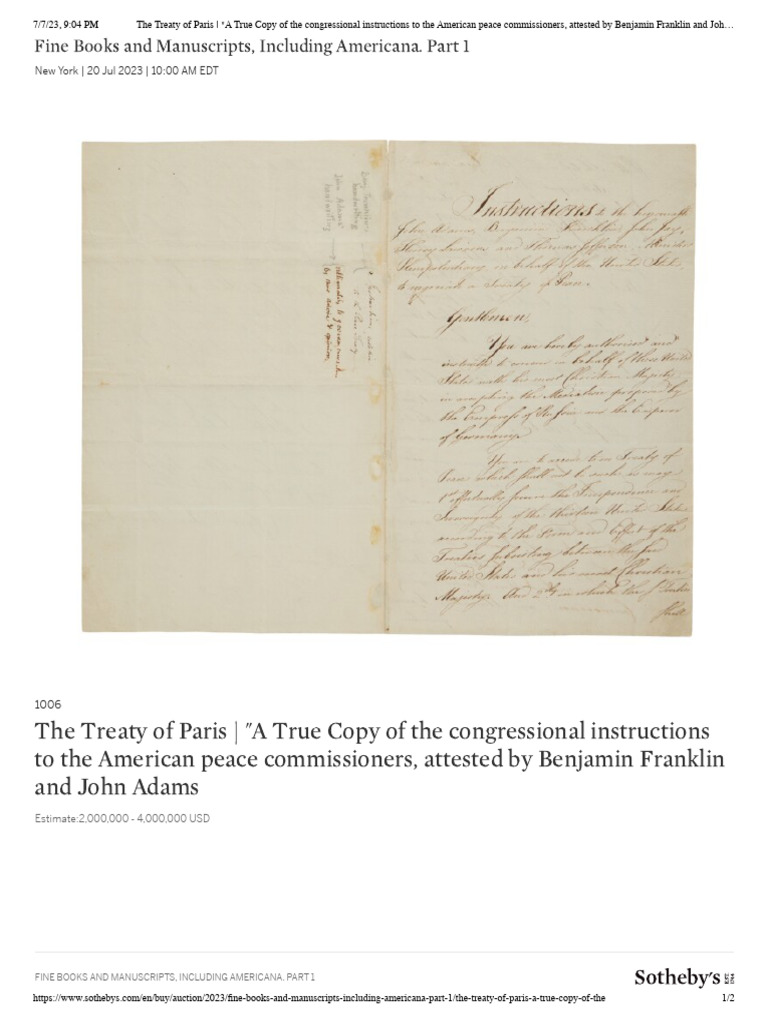 7/7/23, 9:04 PM The Treaty of Paris | "A True Copy of the congressional instructions to the American peace commissioners, attested by Benjamin Franklin and Joh…
Fine Books and Manuscripts, Including Americana. Part 1
New York | 20 Jul 2023 | 10:00 AM EDT
John Adams
handwriting
handwriting
ultimately to govern yourselves
by their advice & opinion.
Instructions to the honorable
John Adams, Benjamin Franklin, John Jay,
Henry Laurens and Thomas Jefferson, Ministers
Plenipotentiary in behalf of the United States,
to negociate a Treaty of Peace.
Gentlemen,
You are hereby authorised and
instructed to concur in behalf of these United
States with his most Christian Majesty
in accepting the Mediation proposed by
the Empress of Russia and the Emperor
of Germany.
You are to accede to no Treaty of
Peace which shall not be such as may
1st effectually secure the Independence and
Sovereignty of the thirteen United States
according to the Form and Effect of the
Treaties subsisting between the said
United States and his most Christian
Majesty. And 2dly in which the sd Treaties
shall
1006
The Treaty of Paris | "A True Copy of the congressional instructions
to the American peace commissioners, attested by Benjamin Franklin
and John Adams
Estimate:2,000,000 - 4,000,000 USD
FINE BOOKS AND MANUSCRIPTS, INCLUDING AMERICANA. PART 1
Sotheby's EST. 1744
https://www.sothebys.com/en/buy/auction/2023/fine-books-and-manuscripts-including-americana-part-1/the-treaty-of-paris-a-true-copy-of-the 1/2